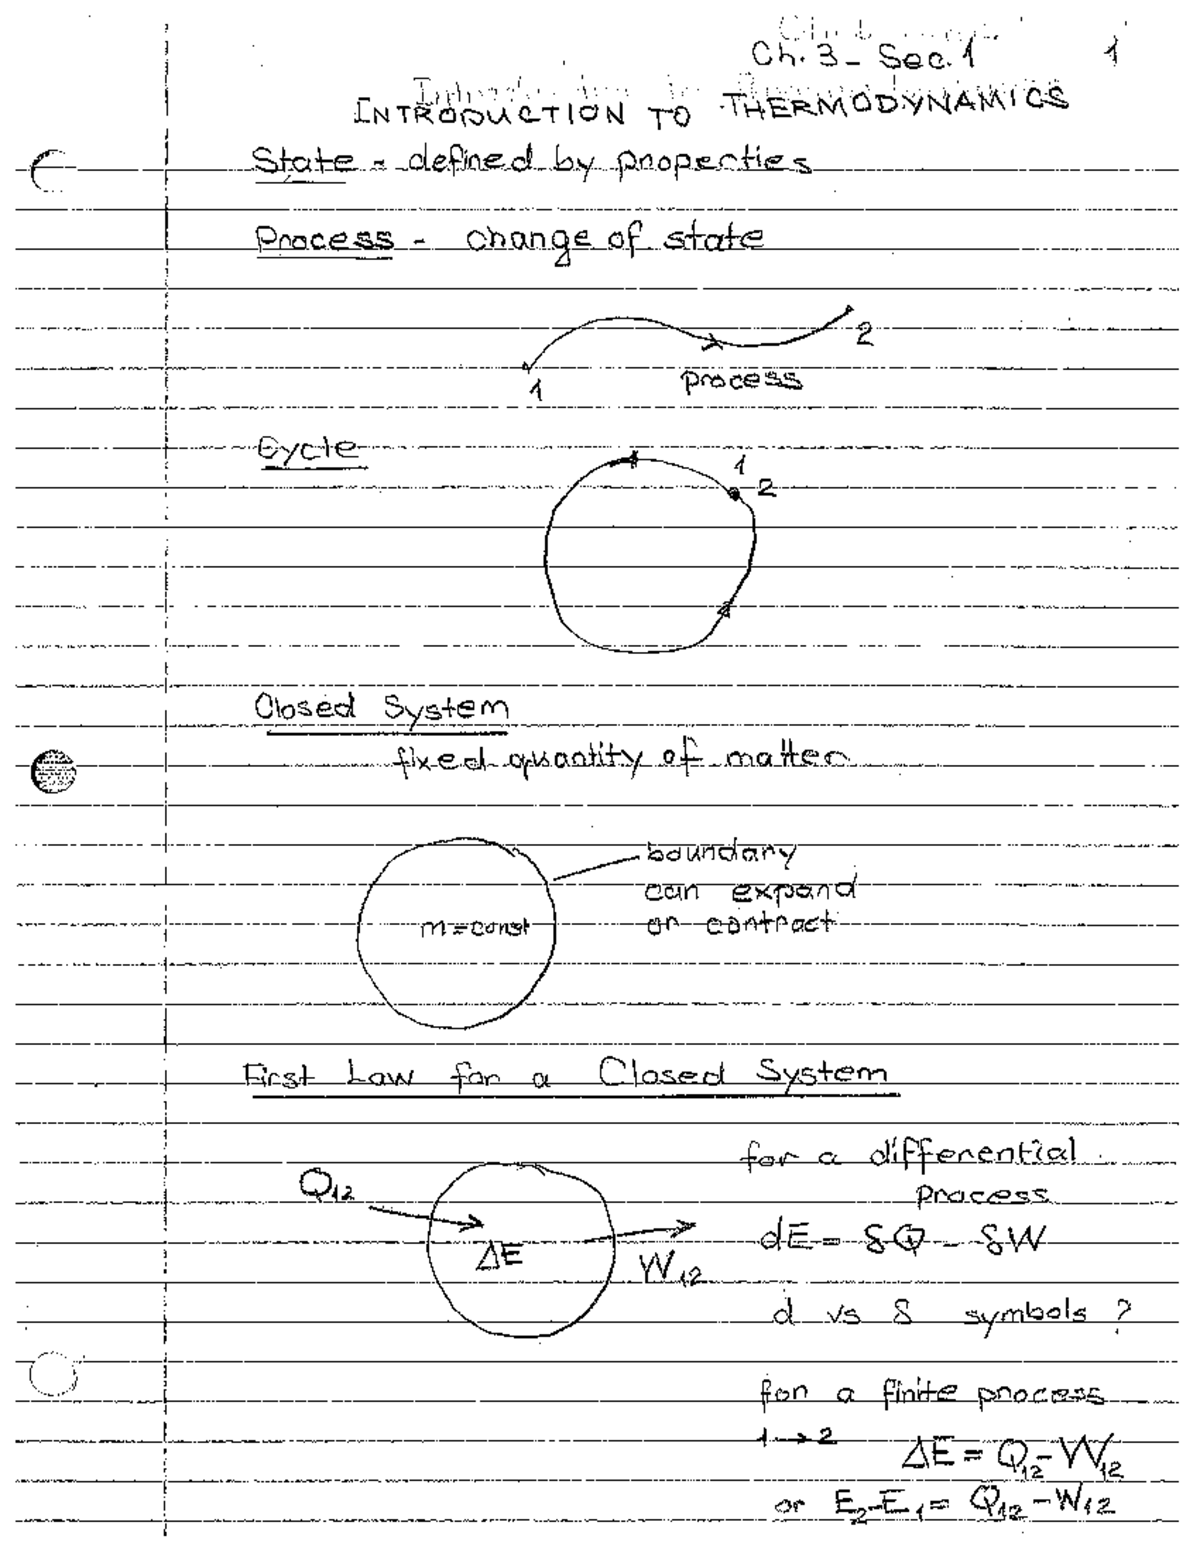 Ch. 3 - Sec. 1 1
INTRODUCTION TO THERMODYNAMICS
State - defined by properties
Process - change of state
1 process 2
Cycle
1
2
Closed System
fixed quantity of matter
boundary
can expand
m = const or contract
First Law for a Closed System
for a differential
process
Q12
ΔE W12 dE = δQ - δW
d vs δ symbols ?
for a finite process
1 → 2 ΔE = Q12 - W12
or E2 - E1 = Q12 - W12